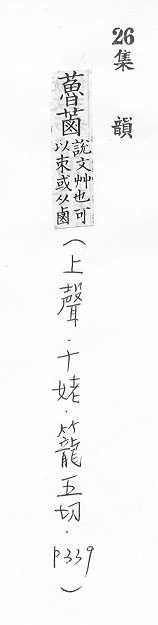 26
集韻
蘑䓐說文艸也可以束或从鹵
(上聲.十姥.籠五切.p339)